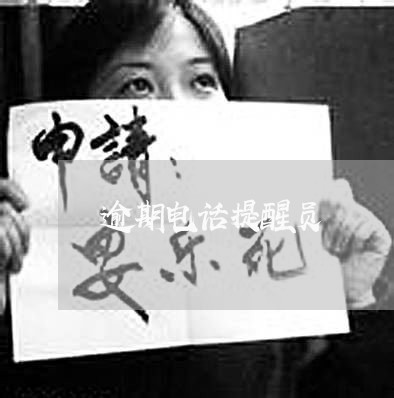 申請：
逾期电话提醒员
要乐